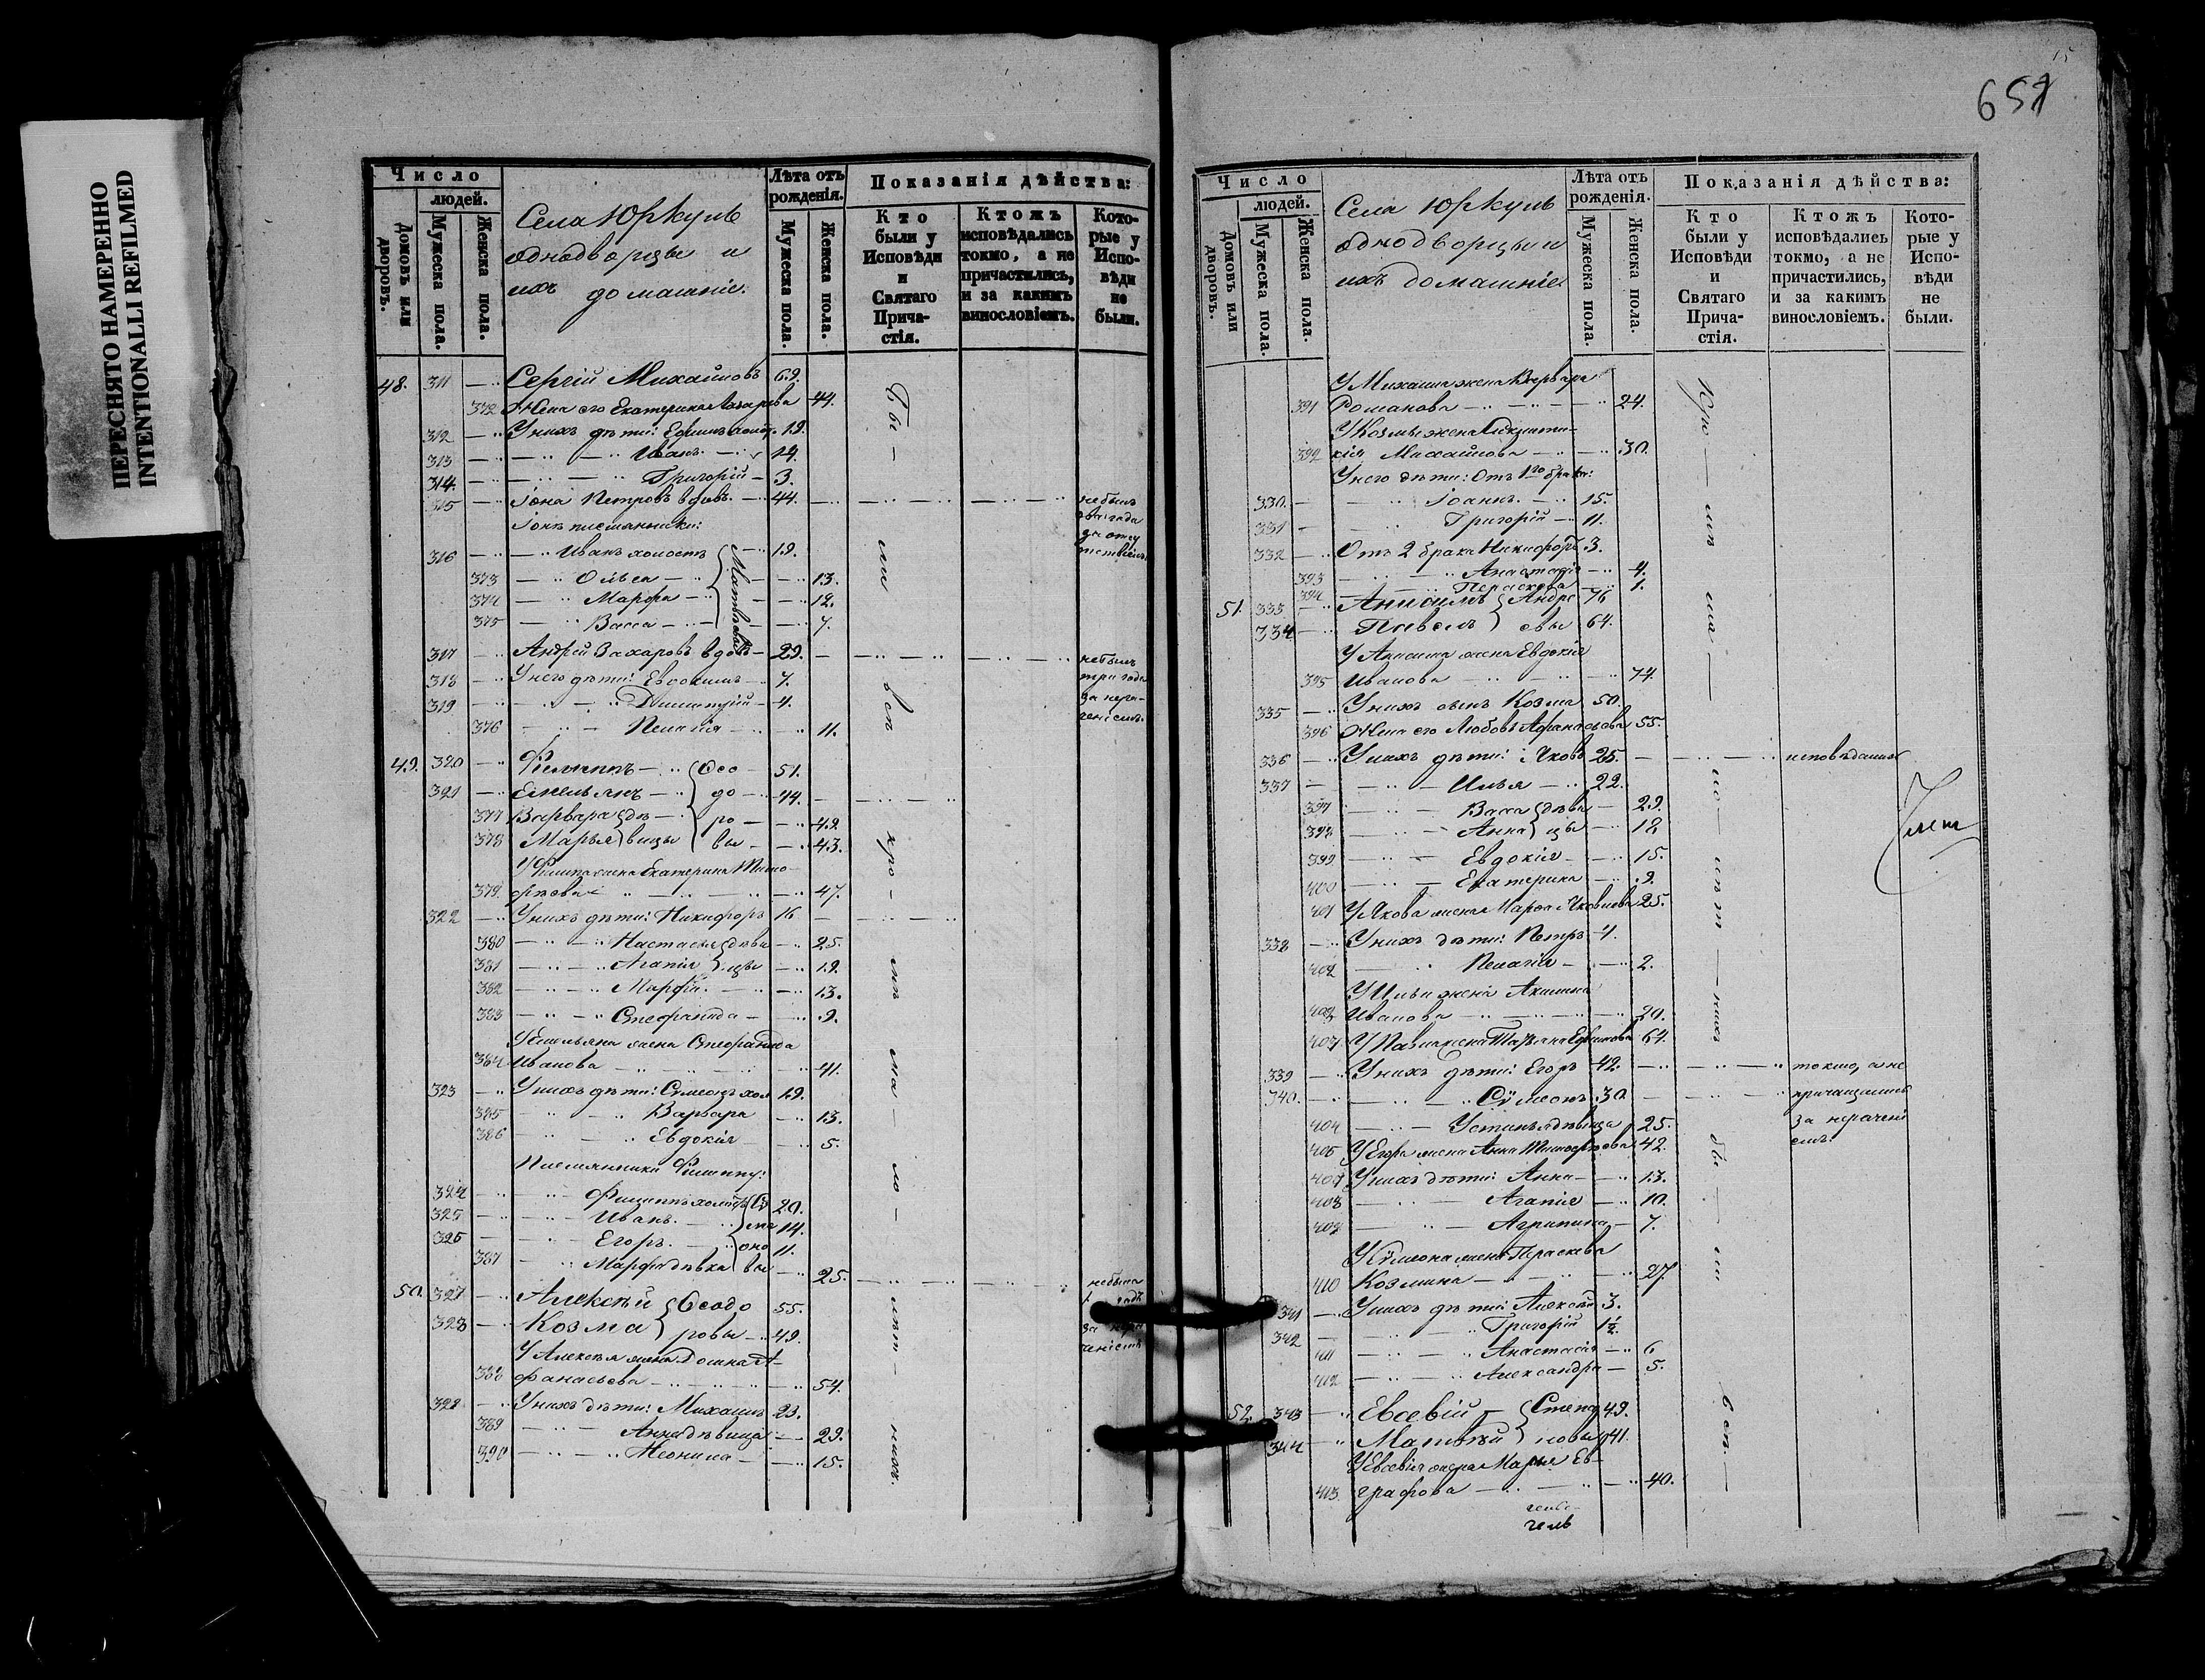 ПЕРЕСНЯТО НАМЕРЕННО
INTENTIONALLI REFILMED
Число
людей.
Домовъ или дворовъ.
Мужеска пола.
Женска пола.
Села Юркуль
однодворцы и
ихъ домашніе.
Лѣта отъ рожденія.
Мужеска пола.
Женска пола.
Показанія дѣйства:
Кто были у Исповѣди и Святаго Причастія.
Ктожъ исповѣдались токмо, а не причастились, и за какимъ винословіемъ.
Которые у Исповѣди не были.
48. 311 Сергій Михайловъ 69.
372 Жена его Екатерина Захарова 44.
312 У нихъ дѣти: Ефимъ холост. 19.
313 Иванъ 14.
314. Григорій 3.
315 Іона Петровъ вдовъ 44. не былъ
два года
за отсу
тствіемъ
Іонѣ племянники:
316 Иванъ холостъ 19.
373 Ольга 13.
374 Марфа 12.
375 Васса 7.
Матвѣевы
317 Андрей Захаровъ вдовъ 29. не былъ
318 У него дѣти: Евдокимъ 7. три года
319 Димитрій 4. за нера-
ченіемъ.
376 Пелагія 11.
49. 320 Филиппъ Ѳео 51.
321 Емельянъ до 44.
377 Варвара дѣ ро 49.
378 Марья вицы вы 43.
У Филиппа жена Екатерина Тимо
379. фѣева 47.
322 У нихъ дѣти: Никифоръ 16
380 Настасья дѣви 25.
381 Агапія цы 19.
382 Марфа 13.
383 Стефанида 9.
У Емельяна жена Стефанида
384 Иванова 41.
323 У нихъ дѣти: Сѵмеонъ хол 19.
385 Варвара 13.
386 Евдокія 5.
Племянники Филиппу:
324 Филиппъ холостъ Сѵ 20.
325 Иванъ. ме 14.
326 Егоръ. оно 11.
387 Марфа дѣвка вы 25. не была
за нера
ченіемъ
50. 327 Алексѣй Ѳеодо 55.
328 Козма ровы 49.
У Алексѣя жена Домна А-
388 фанасьева 54.
329 У нихъ дѣти: Михаилъ 23.
389 Анна дѣвица 29.
390 Неонила 15.
15
651
Число
людей.
Домовъ или дворовъ.
Мужеска пола.
Женска пола.
Села Юркуль
однодворцы и
ихъ домашніе.
Лѣта отъ рожденія.
Мужеска пола.
Женска пола.
Показанія дѣйства:
Кто были у Исповѣди и Святаго Причастія.
Ктожъ исповѣдались токмо, а не причастились, и за какимъ винословіемъ.
Которые у Исповѣди не были.
У Михаила жена Варвара
391 Романова 24.
У Козмы жена Гликери-
392 кія Михайлова 30.
У него дѣти: Отъ 1го брака:
330. Іоаннъ 15.
331 Григорій 11.
332 Отъ 2 брака Никифоръ 3.
393 Анастасія 4.
394 Параскева 1.
51. 333 Анисимъ Андре 76
334 Павелъ евы 64.
У Анисима жена Евдокія
395 Иванова 74.
335 У нихъ сынъ Козма 50.
396 Жена его Любовь Афанасьева 55.
336 У нихъ дѣти: Яковъ 25. исповѣдались
337 Илья 22.
397 Васса дѣви 29.
398 Анна цы 18
399 Евдокія 15.
400 Екатерина 9.
401 У Якова жена Марфа Яковлева 25.
338 У нихъ дѣти: Петръ 4.
402 Пелагія 2.
У Ильи жена Акилина
403 Иванова 20.
У Павла жена Татьяна Ефимова 64.
339 У нихъ дѣти: Егоръ 42. токмо, а не
340. Сѵмеонъ 30. причащались
404 Устинья дѣвица 25. за нераченi
406 У Егора жена Анна Тимофѣева 42. емъ.
407 У нихъ дѣти: Анна 13.
408 Агапія 10.
409 Агрипина 7.
У Сѵмеона жена Параскева
410 Козмина 27.
341 У нихъ дѣти: Алексѣй 3.
342 Григорій 1½.
411 Анастасія 6
412 Александра 5.
52. 343 Евсевій Степа 49.
344 Матвѣй новы 41.
У Евсевія жена Марья Ев-
413 графова 40.